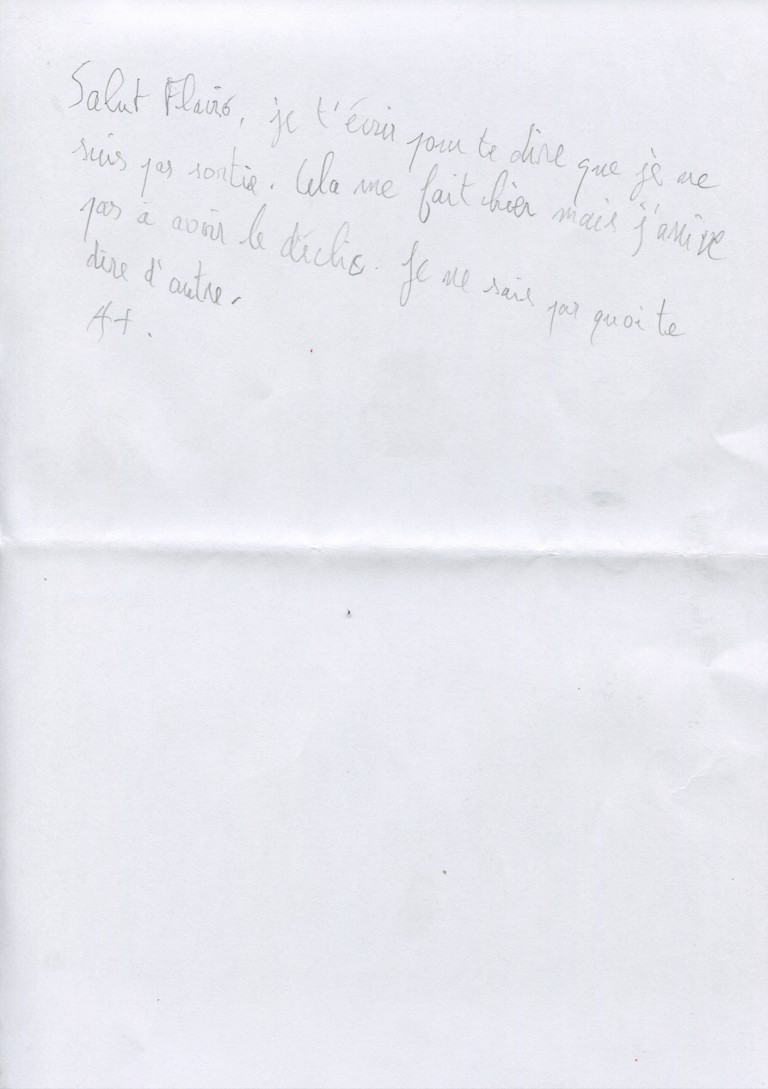 Salut Flavio, je t'écris pour te dire que je ne
suis pas sortie. Cela me fait chier mais j'arrive
pas à avoir le déclic. Je ne sais pas quoi te
dire d'autre.
A+.